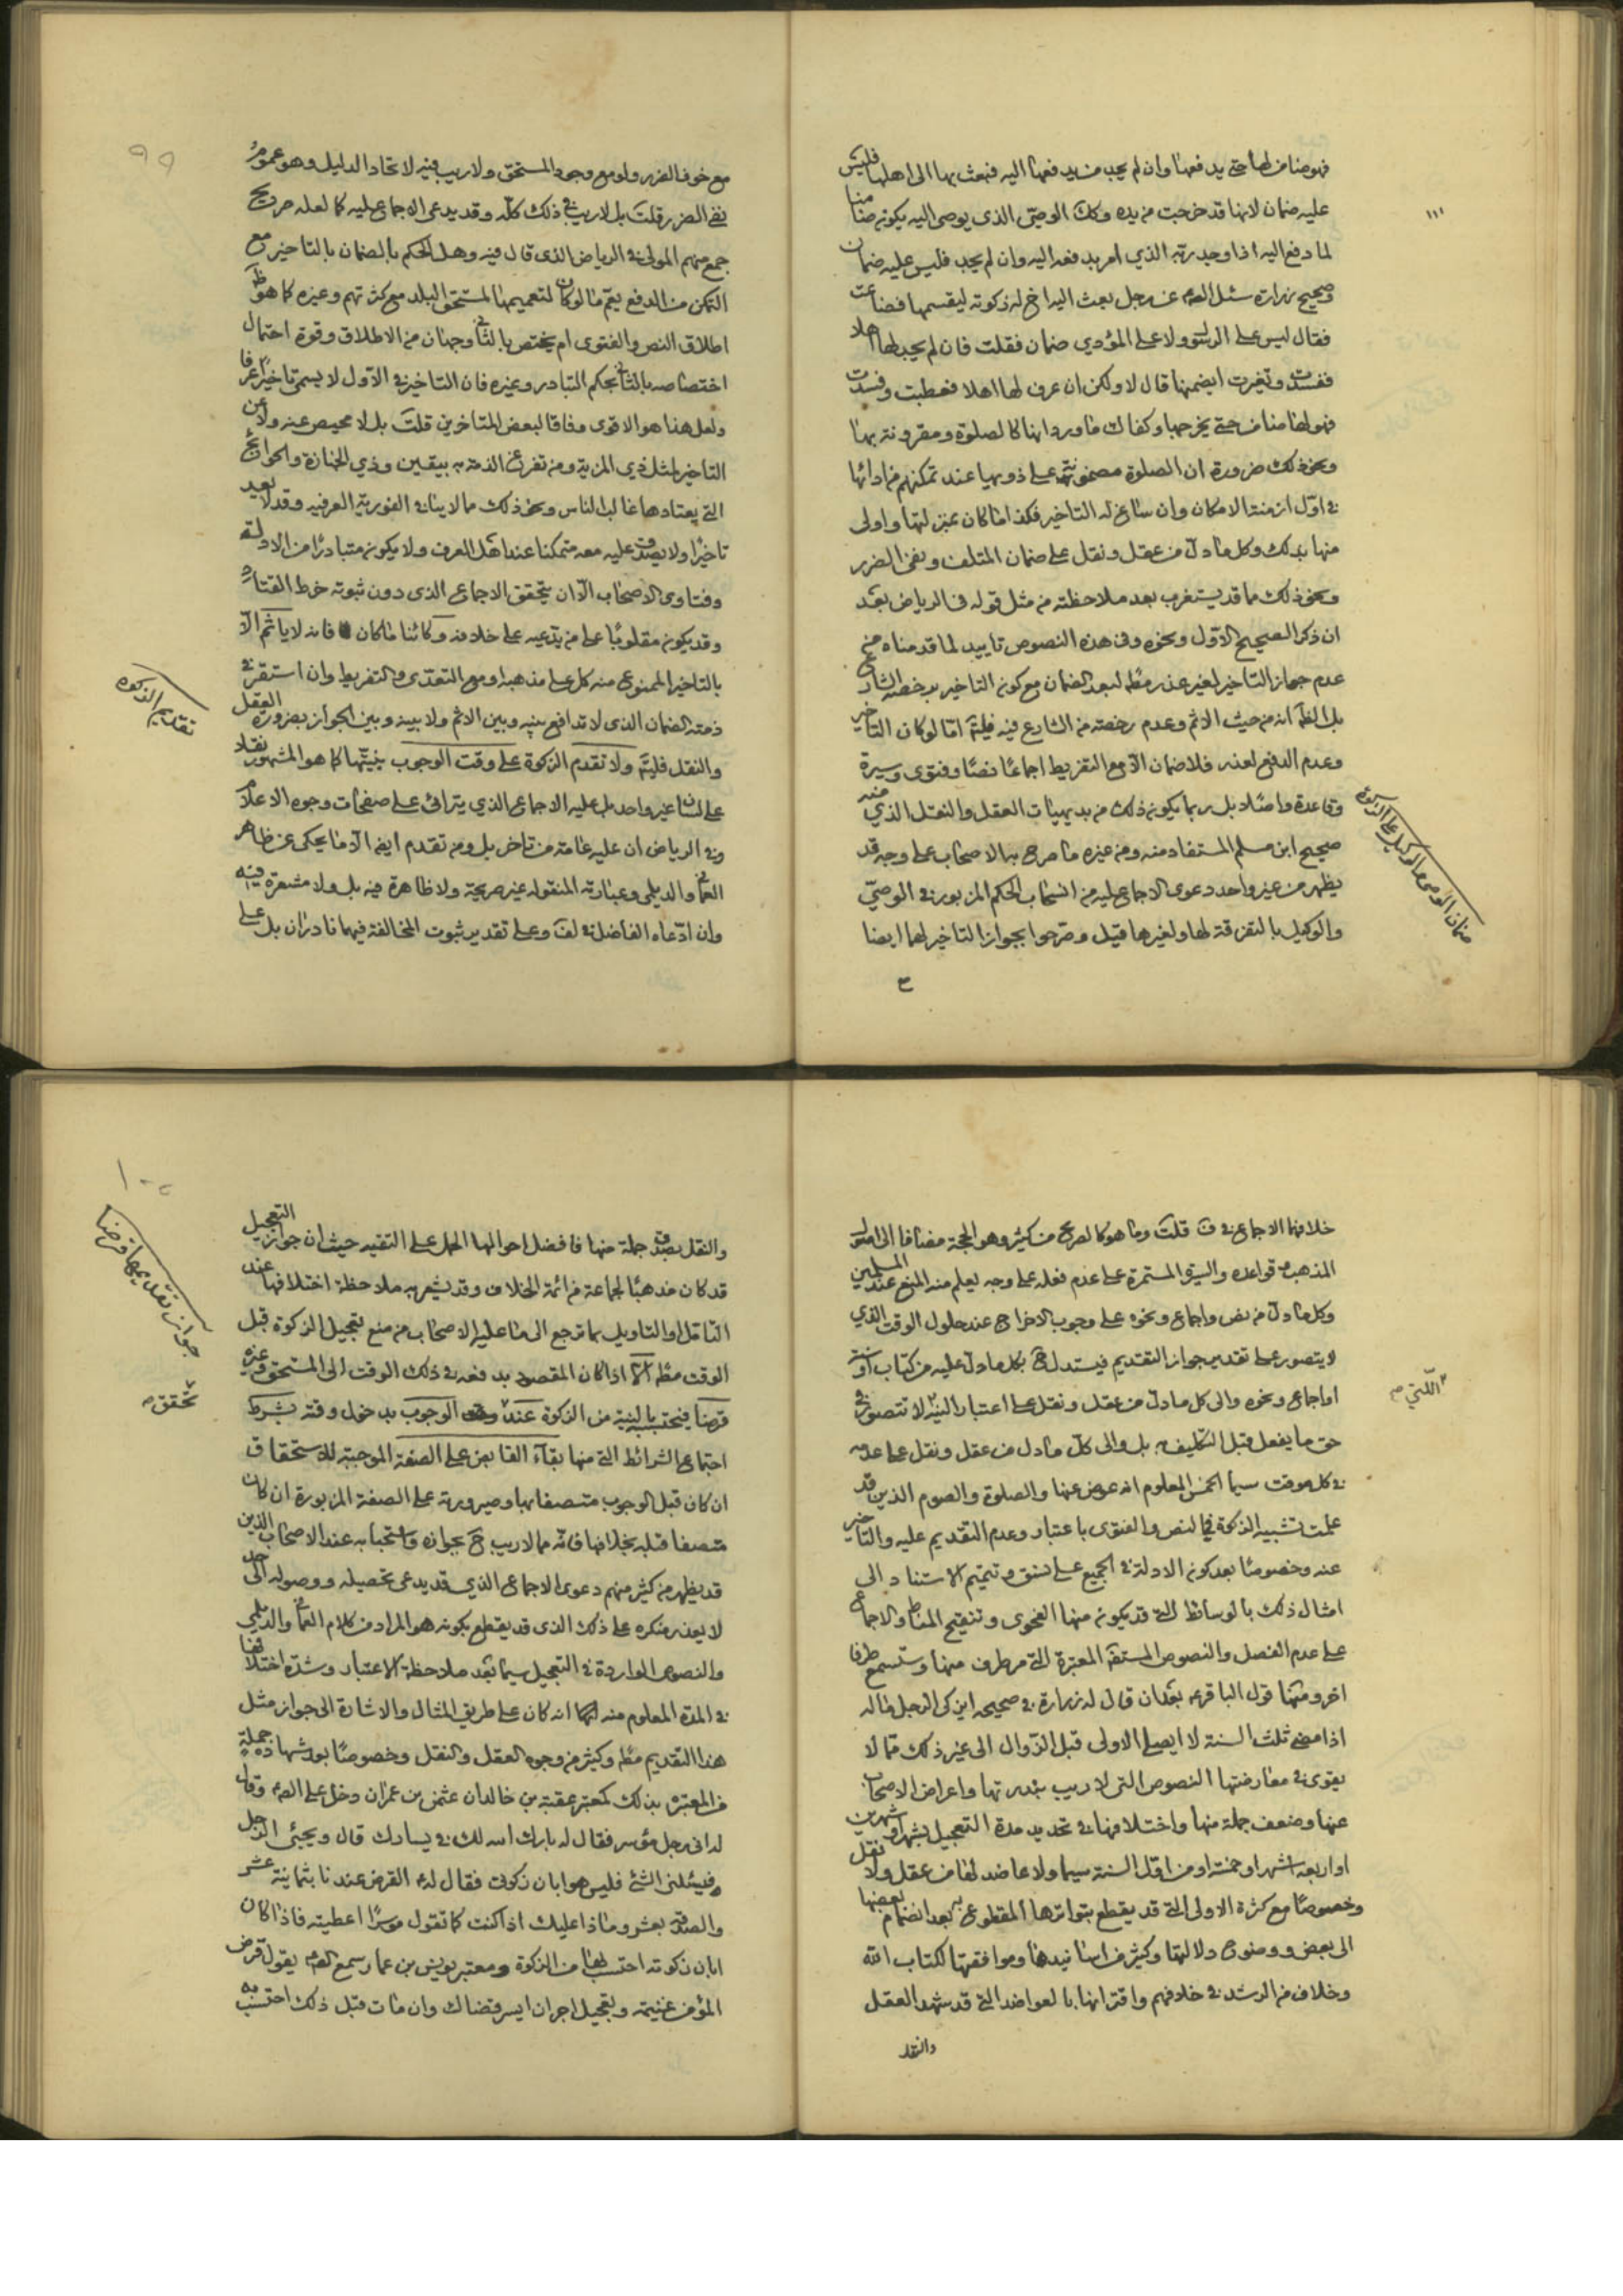 فهو ضامن لها حتى يدفعها وان لم يجد من يدفعها اليه فبعث بها الى اهلها فليس
عليه ضمان لانها قد خرجت من يده وكك الوصي الذي يوصى اليه يكون ضامنا
لما دفع اليه اذا وجد ربه الذي امر بدفعه اليه وان لم يجد فليس عليه ضمان
وصحيح زرارة سئل الصم عن رجل بعث اليه اخ له زكوته ليقسمها فضاعت
فقال ليس على الرسول ولا على المؤدي ضمان فقلت فان لم يجد لها اهلا
ففسدت وتغيرت ايضمنها قال لا ولكن ان عرف لها اهلا فعطبت وفسدت
فهو لها ضامن حتى يخرجها وكفاك ما ورد انها كالصلوة ومقرونة بها
ونحو ذلك ضرورة ان الصلوة مضمونة على ذويها عند تمكنهم من ادائها
في اول ازمنة الامكان وان ساغ له التاخير فكذا ما كان بمنزلتها واولى
منها بذلك وكل ما دل من عقل ونقل على ضمان المتلف ونفى الضرر
ونحو ذلك مما قد يستغرب بعد ملاحظته من مثل قوله في الرياض بعد
ان ذكر الصحيح الاول ونحوه وفى هذه النصوص تاييد لما قدمناه من
عدم جواز التاخير لغير عذر مطم لبعد الضمان مع كون التاخير برخصة الشارع
بل الظم انه من حيث الاثم وعدم رخصته من الشارع فيه فليتم اما لو كان التاخير
وعدم الدفع لعذر فلا ضمان الا مع التفريط اجماعا نصا وفتوى وسيرة
وقاعدة واصلا بل ربما يكون ذلك من بديهيات العقل والنقل الذي منه
صحيح ابن مسلم المستفاد منه ومن غيره ما صرح به الاصحاب على وجه قد
يظهر من غير واحد دعوى الاجماع عليه من انسحاب الحكم المزبور في الوصي
والوكيل بالتفرقة لها ولغيرها قيل وصرحوا بجواز التاخير لها ايضا
ضمان الوصي والوكيل على الزكوة
١١١
٩٩
مع خوف الضرر ولو مع وجود المستحق ولا ريب فيه لاتحاد الدليل وهو عموم
نفى الضرر قلت بل لا ريب في ذلك كله وقد يدعى الاجماع عليه كما لعله صريح
جمع منهم المولى في الرياض الذي قال فيه وهل الحكم بالضمان بالتاخير مع
التمكن من الدفع يعم ما لو كان لتعميمها المستحق البلد مع كثرتهم وغيره كما هو ظم
اطلاق النص والفتوى ام يختص بالثاني وجهان من الاطلاق وقوة احتمال
اختصاصه بالثاني بحكم التبادر وغيره فان التاخير في الاول لا يسمى تاخيرا عرفا
ولعل هذا هو الاقوى وفاقا لبعض المتاخرين قلت بل لا محيص عنه ولا عن
التاخير لمثل ذي المزية ومن تفرغ الذمة به بيقين وذي الجنازة والحوائج
التي يعتادها غالب الناس ونحو ذلك مما لا ينافي الفورية العرفية وقد لا يعد
تاخيرا ولا يصدق عليه معه متمكنا عند اهل العرف ولا يكون متبادرا من الادلة
وفتاوى الاصحاب الا ان يتحقق الاجماع الذي دون ثبوته خرط القتاد
وقد يكون مقلوبا على من يدعيه على خلافه وكائنا ما كان فانه لا ياثم الا
بالتاخير الممنوع منه كل على مذهبه او مع التعدي والتفريط وان استقر في
ذمته الضمان الذي لا تدافع بينه وبين الاثم ولا بينه وبين الجواز بضرورة العقل
والنقل فليتم ولا تقدم الزكوة على وقت الوجوب بنيتها كما هو المشهور نقلا
على لسان غير واحد بل عليه الاجماع الذي يترائى على صفحات وجوه الاعلام
وفي الرياض ان عليه عامة من تاخر بل ومن تقدم ايضا الا ما يحكى عن ظاهر
العماني والديلمي وعبارته المنقولة غير صريحة ولا ظاهرة فيه بل ولا مشعرة فيه
وان ادعاه الفاضل في لف وعلى تقدير ثبوت المخالفة فيهما نادران بل على
تقديم الزكوة
خلافهما الاجماع في ف قلت وما هو كالصريح من كثير وهو الحجة مضافا الى اصول
المذهب وقواعده والسيرة المستمرة على عدم فعله على وجه يعلم منه المنع عند المسلمين
وكل ما دل من نص واجماع ونحوه على وجوب الاخراج عند حلول الوقت الذي
لا يتصور على تقدير جواز التقديم فيستدل ح بكل ما دل عليه من كتاب او سنة
او اجماع ونحوه والى كل ما دل من عقل ونقل على اعتبار النية لا تتصور في
حق ما يفعل قبل التكليف به بل والى كل ما دل من عقل ونقل على عدمه
في كل موقت سيما الخمس المعلوم انه عوض عنها والصلوة والصوم الذين قد
علمت تشبيه الزكوة في النص والفتوى باعتبار وعدم التقديم عليه والتاخير
عنه وخصوصا بعد كون الادلة في الجميع على نسق وتتميم الاستناد الى
امثال ذلك بالوسائط التي قد يكون منها الفحوى وتنقيح المناط والاجماع
على عدم الفصل والنصوص المستفة المعتبرة التي مر طرف منها وستسمع طرفا
اخر ومنها قول الباقرم بعد ان قال له زرارة في صحيحه ايزكى الرجل ماله
اذا مضى ثلث السنة لا ايصلي الاولى قبل الزوال الى غير ذلك مما لا
يقوى في معارضتها النصوص التي لا ريب بندرتها واعراض الاصحاب
عنها وضعف جملة منها واختلافها في تحديد مدة التعجيل بشهر او شهرين
او اربعة اشهر او خمسة او من اول السنة سيما ولا عاضد لها من عقل ولا نقل
وخصوصا مع كثرة الاولى التي قد يقطع بتواترها المقطوع به بعد انضمام بعضها
الى بعض ووضوح دلالتها وكثير من اسانيدها وموافقتها لكتاب الله
وخلاف من الرشد في خلافهم واقترانها بالعواضد التي قد شهد العقل
والنقل
اللتي
١٠٠
والنقل بصدق جملة منها فافضل احوالها الحمل على التقية حيث ان جواز التعجيل
قد كان مذهبا لجماعة من ائمة الخلاف وقد يشعر به ملاحظة اختلافها عند
التامل او التاويل بما ترجع الى ما عليه الاصحاب من منع تعجيل الزكوة قبل
الوقت مطم الا اذا كان المقصود بدفعه في ذلك الوقت الى المستحق وغيره
قرضا فيحتسبه بالنية من الزكوة عند الوجوب بدخول وقته بشرط
اجتماع الشرائط التي منها بقاء القابض على الصفة الموجبة للاستحقاق
ان كان قبل الوجوب متصفا بها وصيرورته على الصفة المزبورة ان كان
متصفا قبله بخلافها فانه مما لا ريب ح بجوازه واستحبابه عند الاصحاب الذين
قد يظهر من كثير منهم دعوى الاجماع الذي قد يدعى تحصيله ووصوله الى حد
لا يعذر منكره على ذلك الذي قد يقطع بكونه هو المراد من كلام العماني والديلمي
والنصوص الواردة في التعجيل سيما بعد ملاحظة الاعتبار وشدة اختلافها
في المدة المعلوم منه انه كان على طريق المثال والاشارة الى جواز مثل
هذا التقديم مطم وكثير من وجوه العقل والنقل وخصوصا بعد شهادة جملة
من المعتبرة بذلك كمعتبر عقبة بن خالد ان عثمن بن عمران دخل على الصم وقال
له اني رجل مؤسر فقال له بارك الله لك في يسارك قال ويجئى الرجل
فيسئلني الشئ فليس هو ابان زكوتي فقال لهم القرض عندنا بثمانية عشر
والصدقة بعشر وماذا عليك اذا كنت كما تقول موسرا اعطيته فاذا كان
ابان زكوته احتسب لها من الزكوة ومعتبر يونس بن عمار سمع الصم يقول قرض
المؤمن غنيمة وتعجيل اجر ان ايسر قضاك وان مات قبل ذلك احتسبت به
جواز نقل يمها قرضا
تحقق